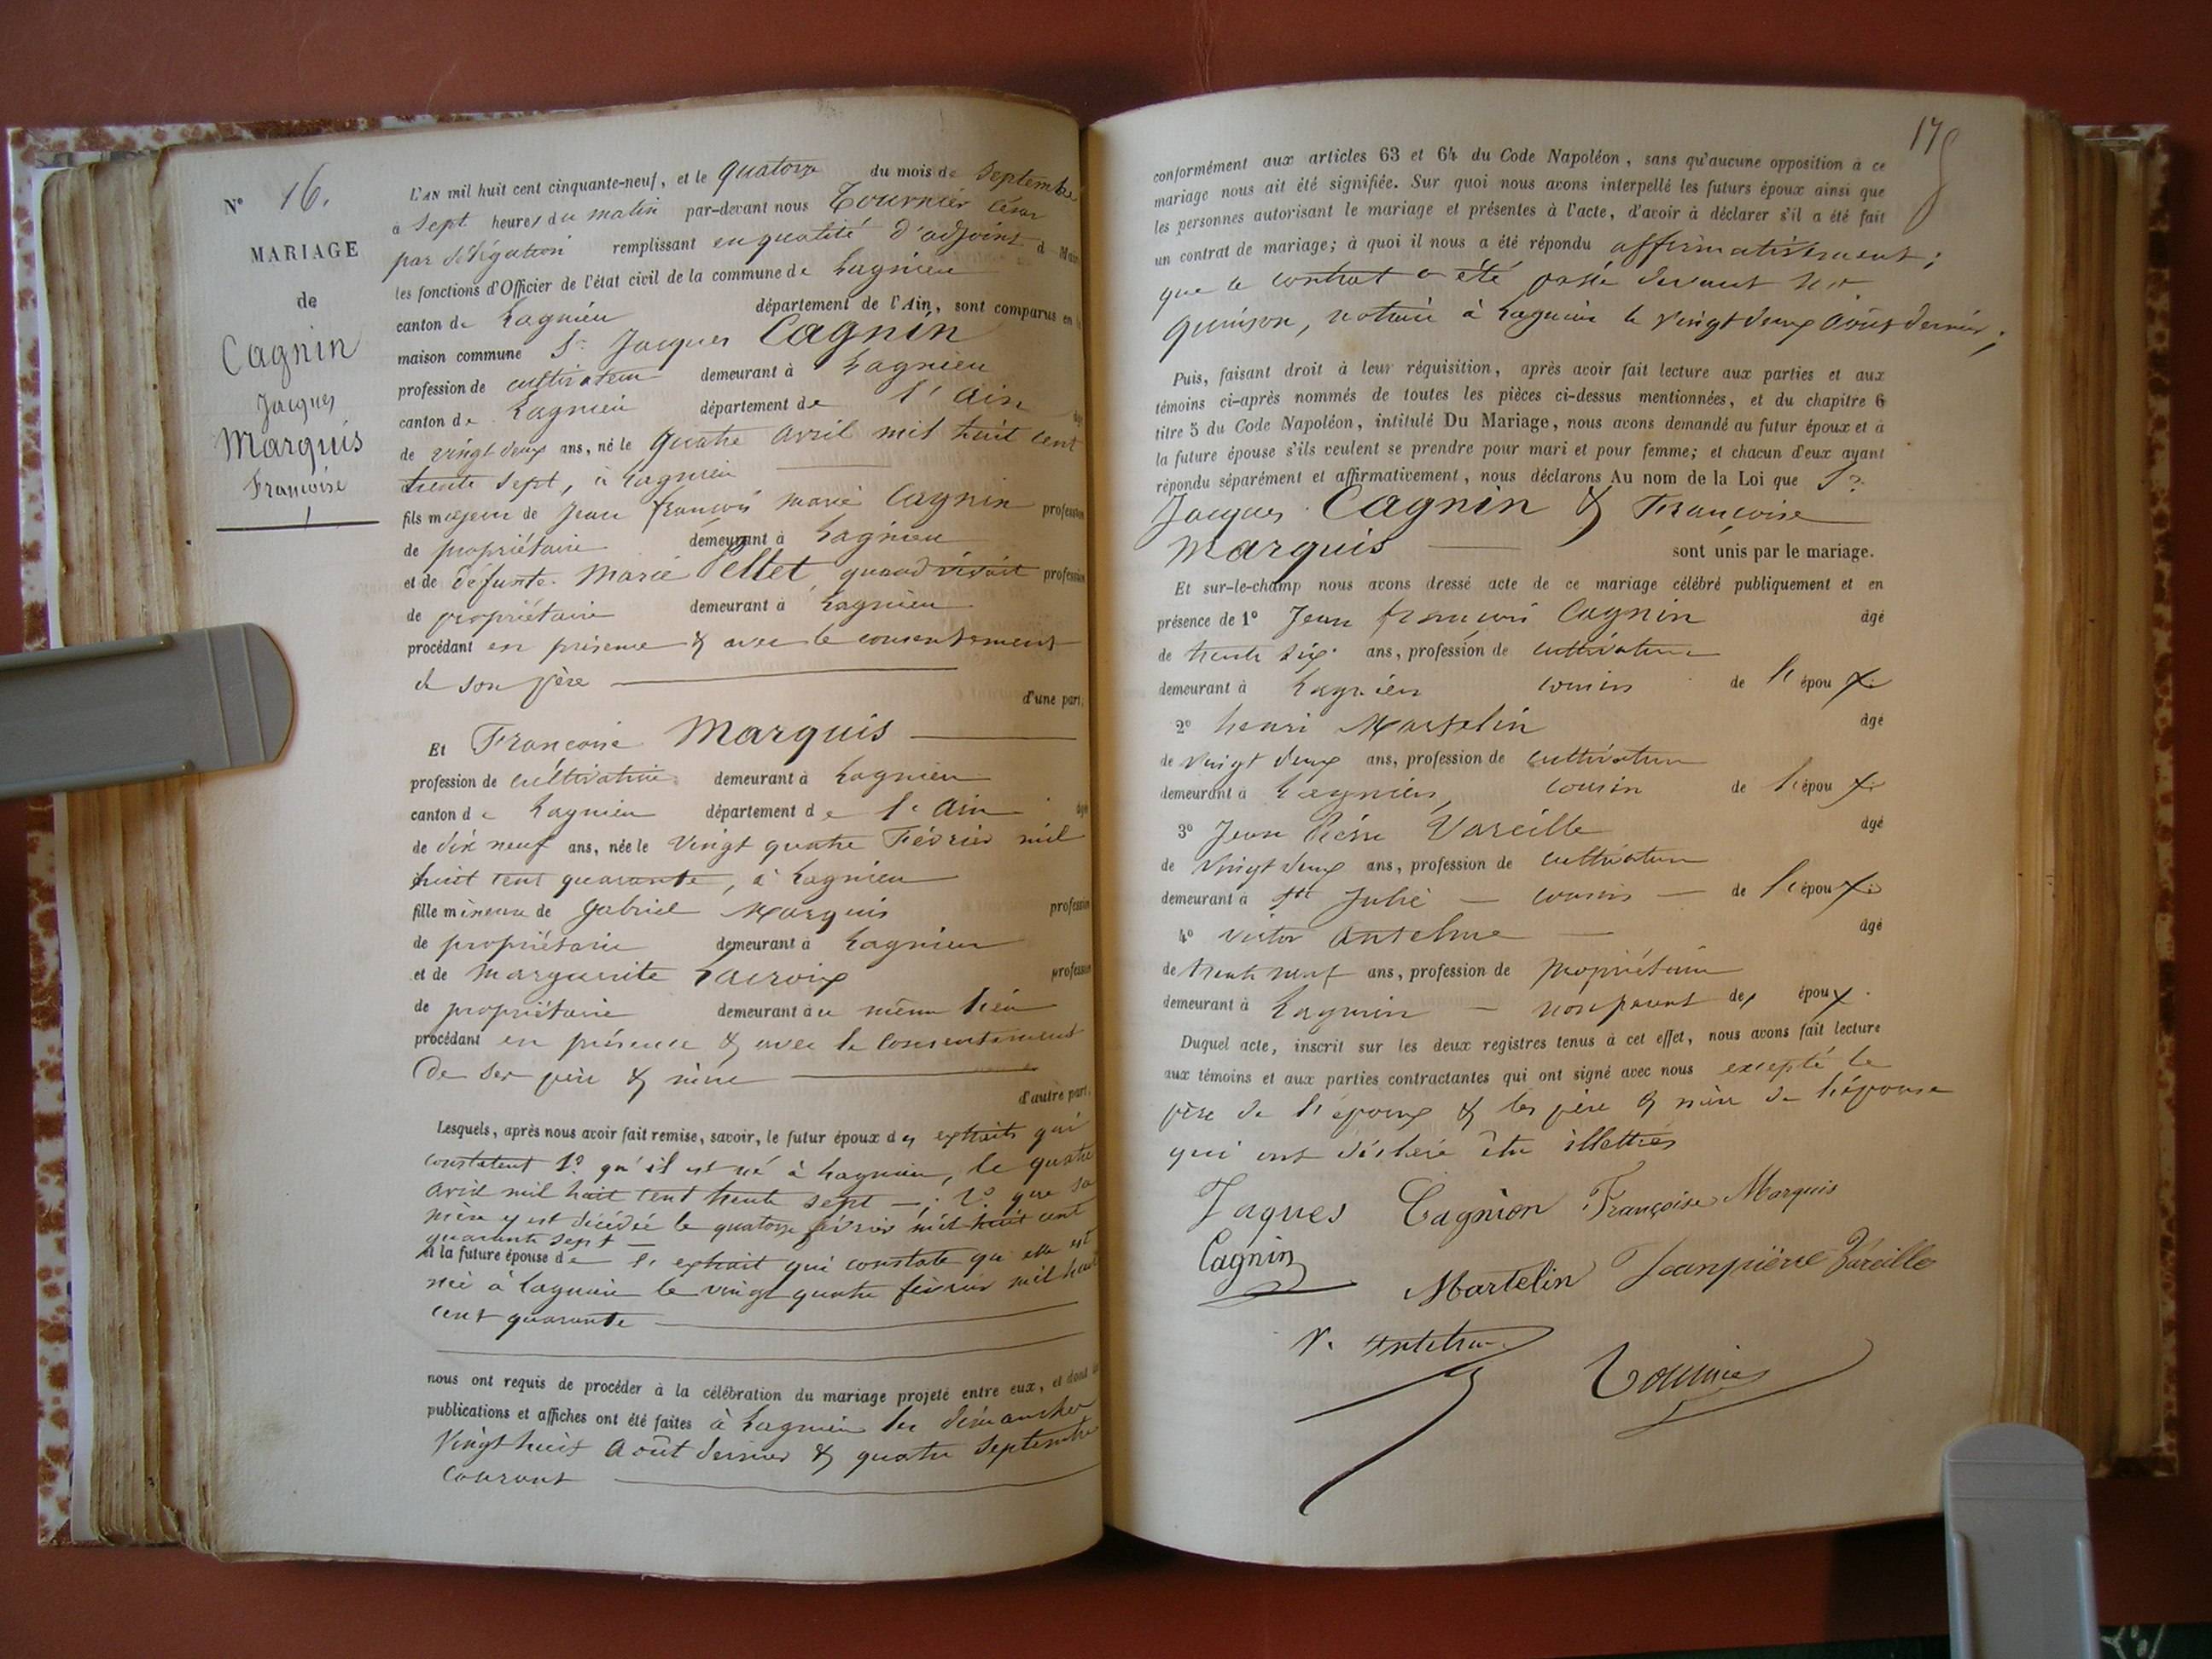 N° 16.
MARIAGE
de
Cagnin
Jacques
Marquis
Françoise
L'AN mil huit cent cinquante-neuf, et le quatorze du mois de septembre
à sept heures du matin par-devant nous Tournier César
par délégation remplissant en qualité d'adjoint d Maire
les fonctions d'Officier de l'état civil de la commune de Lagnieu
canton de Lagnieu département de l'Ain, sont comparus en la
maison commune Sr Jacques Cagnin
profession de cultivateur demeurant à Lagnieu
canton de Lagnieu département de l'Ain âgé
de vingt deux ans, né le quatre avril mil huit cent
trente sept, à Lagnieu
fils majeur de Jean françois marie Cagnin profession
de propriétaire demeurant à Lagnieu
et de défunte Marie Pellet, quand vivait profession
de propriétaire demeurant à Lagnieu
procédant en présence & avec le consentement
de son père
d'une part,
Et Françoise Marquis
profession de cultivatrice demeurant à Lagnieu
canton de Lagnieu département de l'Ain âgé
de dix neuf ans, née le vingt quatre Février mil
huit cent quarante, à Lagnieu
fille mineure de Gabriel Marquis profession
de propriétaire demeurant à Lagnieu
et de Marguerite Lacroix profession
de propriétaire demeurant au même lieu
procédant en présence & avec le consentement
de ses père & mère
d'autre part.
Lesquels, après nous avoir fait remise, savoir, le futur époux des extraits qui
constatent 1° qu'il est né à Lagnieu, le quatre
avril mil huit cent trente sept ; 2° que sa
mère y est décédée le quatorze février mil huit cent
quarante sept
et la future épouse de l'extrait qui constate qu'elle est
née à Lagnieu le vingt quatre février mil huit
cent quarante
nous ont requis de procéder à la célébration du mariage projeté entre eux, et dont les
publications et affiches ont été faites à Lagnieu les dimanches
vingt huit Août dernier & quatre septembre
courant
175
conformément aux articles 63 et 64 du Code Napoléon, sans qu'aucune opposition à ce
mariage nous ait été signifiée. Sur quoi nous avons interpellé les futurs époux ainsi que
les personnes autorisant le mariage et présentes à l'acte, d'avoir à déclarer s'il a été fait
un contrat de mariage; à quoi il nous a été répondu affirmativement;
que le contrat a été passé devant Me
Quinson, notaire à Lagnieu le vingt deux Août dernier;
Puis, faisant droit à leur réquisition, après avoir fait lecture aux parties et aux
témoins ci-après nommés de toutes les pièces ci-dessus mentionnées, et du chapitre 6
titre 5 du Code Napoléon, intitulé Du Mariage, nous avons demandé au futur époux et à
la future épouse s'ils veulent se prendre pour mari et pour femme; et chacun d'eux ayant
répondu séparément et affirmativement, nous déclarons Au nom de la Loi que Sr
Jacques Cagnin & Françoise
Marquis sont unis par le mariage.
Et sur-le-champ nous avons dressé acte de ce mariage célébré publiquement et en
présence de 1° Jean françois Cagnin âgé
de trente six ans, profession de cultivateur
demeurant à Lagnieu cousin de l'époux
2° henri Martelin âgé
de vingt deux ans, profession de cultivateur
demeurant à Lagnieu, cousin de l'époux
3° Jean Pierre Vareille âgé
de vingt deux ans, profession de cultivateur
demeurant à Ste Julie cousin de l'époux
4° victor Anthelme âgé
de trente neuf ans, profession de propriétaire
demeurant à Lagnieu non parent des époux.
Duquel acte, inscrit sur les deux registres tenus à cet effet, nous avons fait lecture
aux témoins et aux parties contractantes qui ont signé avec nous excepté le
père de l'époux & les père & mère de l'épouse
qui ont déclaré être illettrés
Jaques Cagnion Françoise Marquis
Cagnin
Martelin Jeanpiërre Vareille
V. Anthelme
Tournier